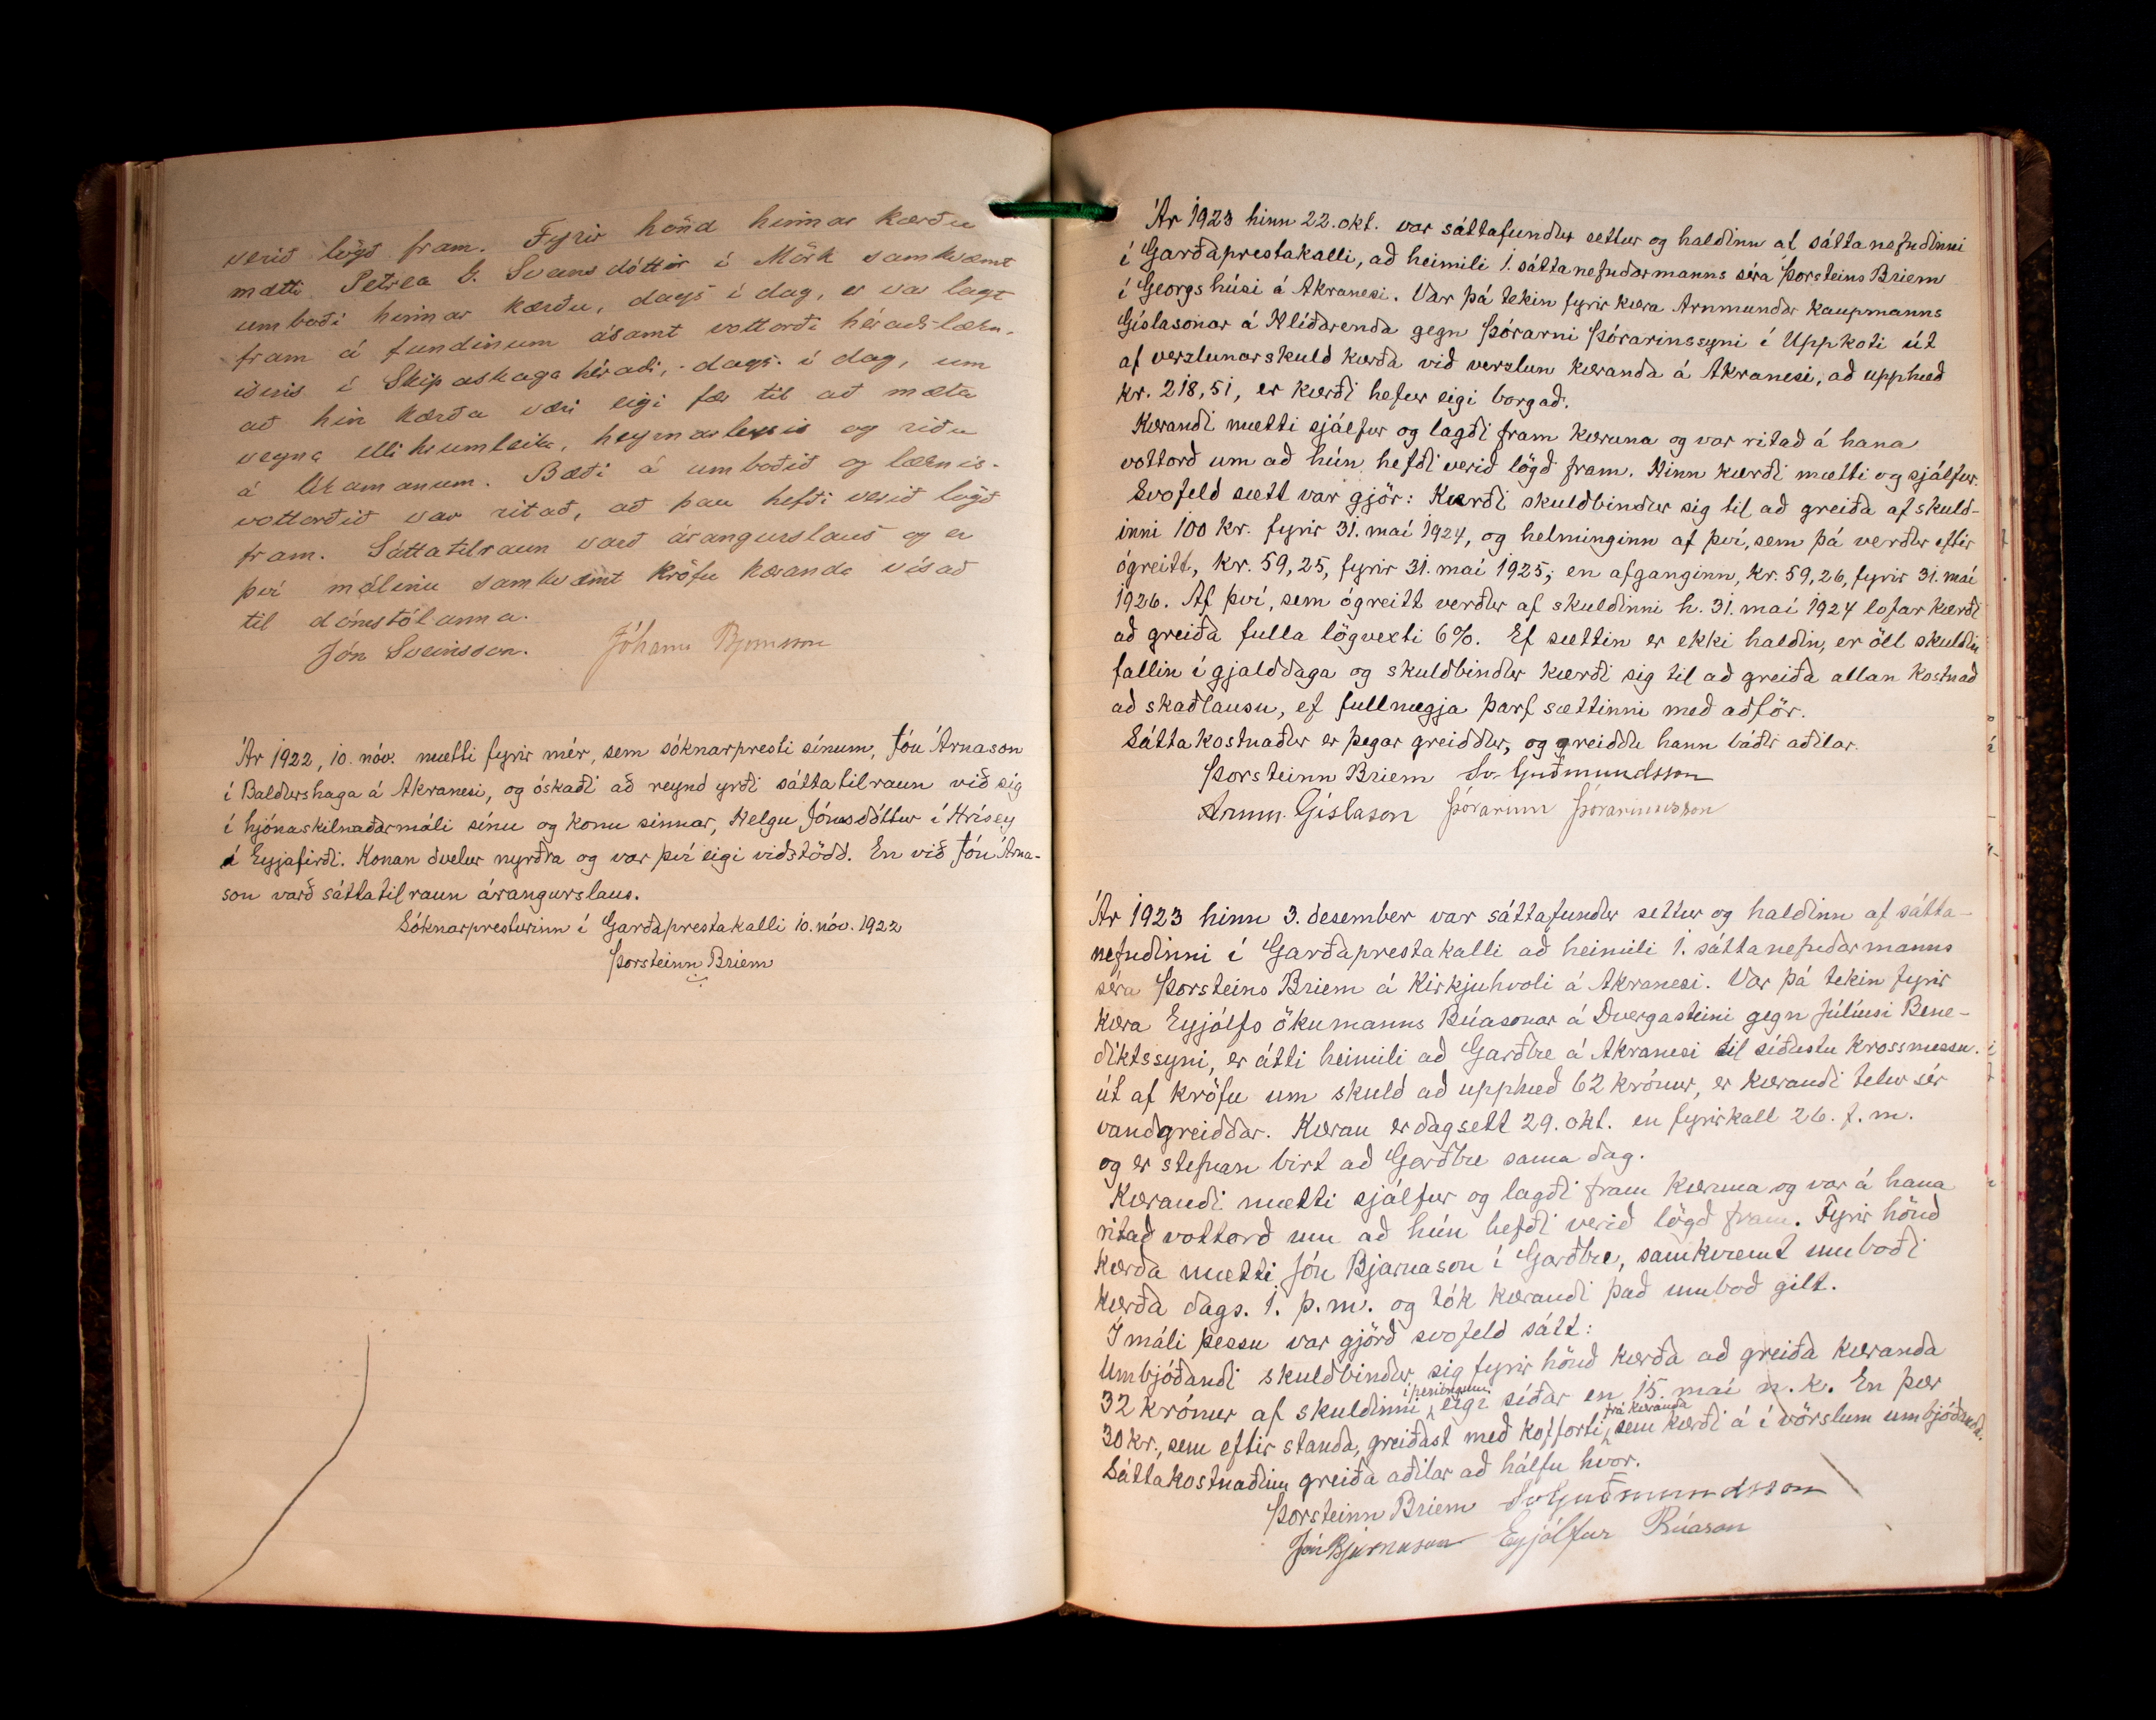 verið lögð fram. Fyrir hönd hinnar kærðu
mætti Petrea G. Sveinsdóttir í Mörk samkvæmt
umboði hinnar kærðu, dags í dag, er var lagt
fram á fundinum ásamt vottorði héraðs-lækn-
isins í Skipaskagahéraði, dags. í dag, um
að hin kærða væri eigi fær til að mæta
vegna ellihrumleika, heyrnarleysis og riðu
á líkamanum. Bæði á umboðið og læknis-
vottorðið var ritað, að þau hefði verið lögð
fram. Sáttatilraun varð árangurslaus og er
því málinu samkvæmt kröfu kæranda vísað
til dómstólanna.
Jón Sveinsson. Jóhann Björnsson
Ár 1922, 10. nóv. mætti fyrir mér, sem sóknarpresti sínum, Jón Árnason
í Baldurshaga á Akranesi, og óskaði að reynd yrði sáttatilraun við sig
í hjónaskilnaðarmáli sínu og konu sinnar, Helgu Jónsdóttur í Hrísey
á Eyjafirði. Konan dvelur nyrðra og var því eigi viðstödd. En við Jón Árna-
son varð sáttatilraun árangurslaus.
Sóknarpresturinn í Garðaprestakalli 10. nóv. 1922
Þorsteinn Briem
Ár 1923 hinn 22. okt. var sáttafundur settur og haldinn af sáttanefndinni
í Garðaprestakalli, að heimili 1. sáttanefndarmanns séra Þorsteins Briem
í Georgshúsi á Akranesi. Var þá tekin fyrir kæra Arnmundar kaupmanns
Gíslasonar á Hlíðarenda gegn Þórarni Þórarinssyni í Uppkoti út
af verzlunarskuld kærða við verzlun kæranda á Akranesi, að upphæð
kr. 218,51, er kærði hefur eigi borgað.
Kærandi mætti sjálfur og lagði fram kæruna og var ritað á hana
vottorð um að hún hefði verið lögð fram. Hinn kærði mætti og sjálfur.
Svofeld sætt var gjör: Kærði skuldbindur sig til að greiða af skuld-
inni 100 kr. fyrir 31. maí 1924, og helminginn af því, sem þá verður eftir
ógreitt, kr. 59,25, fyrir 31. maí 1925; en afganginn, kr. 59,26, fyrir 31. maí
1926. Af því, sem ógreitt verður af skuldinni h. 31. maí 1924 lofar kærði
að greiða fulla lögvexti 6%. Ef sættin er ekki haldin, er öll skuldin
fallin í gjalddaga og skuldbindur kærði sig til að greiða allan kostnað
að skaðlausu, ef fullnægja þarf sættinni með aðför.
Sáttakostnaður er þegar greiddur, og greiddu hann báðir aðilar.
Þorsteinn Briem Sv. Guðmundsson
Arnm. Gíslason Þórarinn Þórarinsson
Ár 1923 hinn 3. desember var sáttafundur settur og haldinn af sátta-
nefndinni í Garðaprestakalli að heimili 1. sáttanefndarmanns
séra Þorsteins Briem á Kirkjuhvoli á Akranesi. Var þá tekin fyrir
kæra Eyjólfs ökumanns Búasonar á Dvergasteini gegn Júlíusi Bene-
diktssyni, er átti heimili að Garðbæ á Akranesi til síðustu krossmessu.
út af kröfu um skuld að upphæð 62 krónur, er kærandi telur sér
vandgreiddar. Kæran er dagsett 29. okt. en fyrirkall 26. f. m.
og er stefnan birt að Garðbæ sama dag.
Kærandi mætti sjálfur og lagði fram kæruna og var á hana
ritað vottorð um að hún hefði verið lögð fram. Fyrir hönd
kærða mætti Jón Bjarnason í Garðbæ, samkvæmt umboði
kærða dags. 1. þ. m. og tók kærandi það umboð gilt.
Í máli þessu var gjörð svofeld sátt:
Umbjóðandi skuldbindur sig fyrir hönd kærða að greiða kæranda
32 krónur af skuldinni í peningum eigi síðar en 15. maí n. k. En þær
30 kr., sem eftir standa, greiðast með kofforti frá kæranda, sem kærði á í vörslum umbjóðanda.
Sáttakostnaðinn greiða aðilar að hálfu hvor.
Þorsteinn Briem Sv Guðmundsson
Jón Bjarnason Eyjólfur Búason